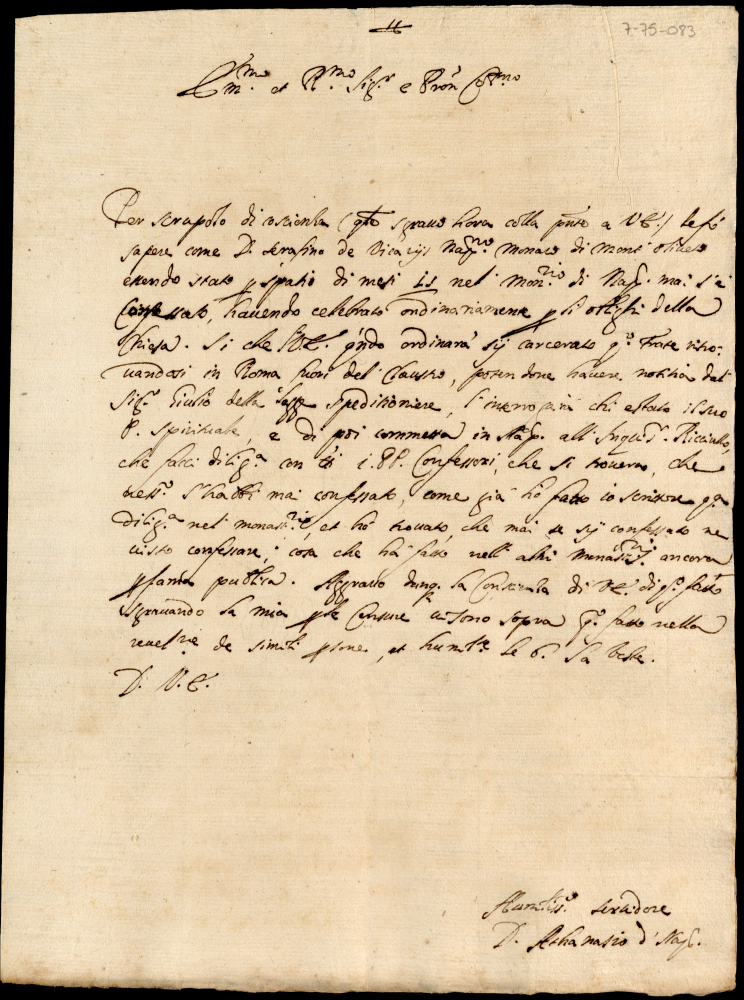 7-75-083
Em.mo et R.mo Sig.r e Pron Col.mo
Per scrupolo di coscienza (q.to sgravo hora colla pnte a V.E.) le fo
sapere come D. Serafino de Vicarijs Nap.no Monaco di Mont' Oliveto
essendo stato p spatio di mesi is nel Mon.rio di Nap. mai s'è
Confessato, havendo celebrato ordinariamente p li offitij della
Chiesa. Si che V.E. q'ndo ordinarà sij carcerato q.o Frate ritro-
vandosi in Roma fuori del Claustro, potendone havere notitia dal
Sig.r Giulio della spedicioniere, l'interrogarà chi è stato il suo
P. Spirituale, e di poi commetta in Nap. all' Inquis.r
che facci dilig.a con ti i PP. Confessori, che si trovorno, che
ness.o l'habbi mai confessato, come già hò fatto io scrittore q.a
dilig.a nel monast.rio, et hò trovato, che mai se sij confessato ne
visto confessare, cosa che hà fatto nell' altri Monast.rij ancora
p fama publica. Aggravo dunq. la Conscienza di V.E. di q.o fatto
sgravando la mia p le Censure vi sono sopra q.o fatto nella
revel.ne de simili psone, et humil.te le b. la veste.
D. V. E.
Humiliss.o servidore
D. Athanasio d' Nap.